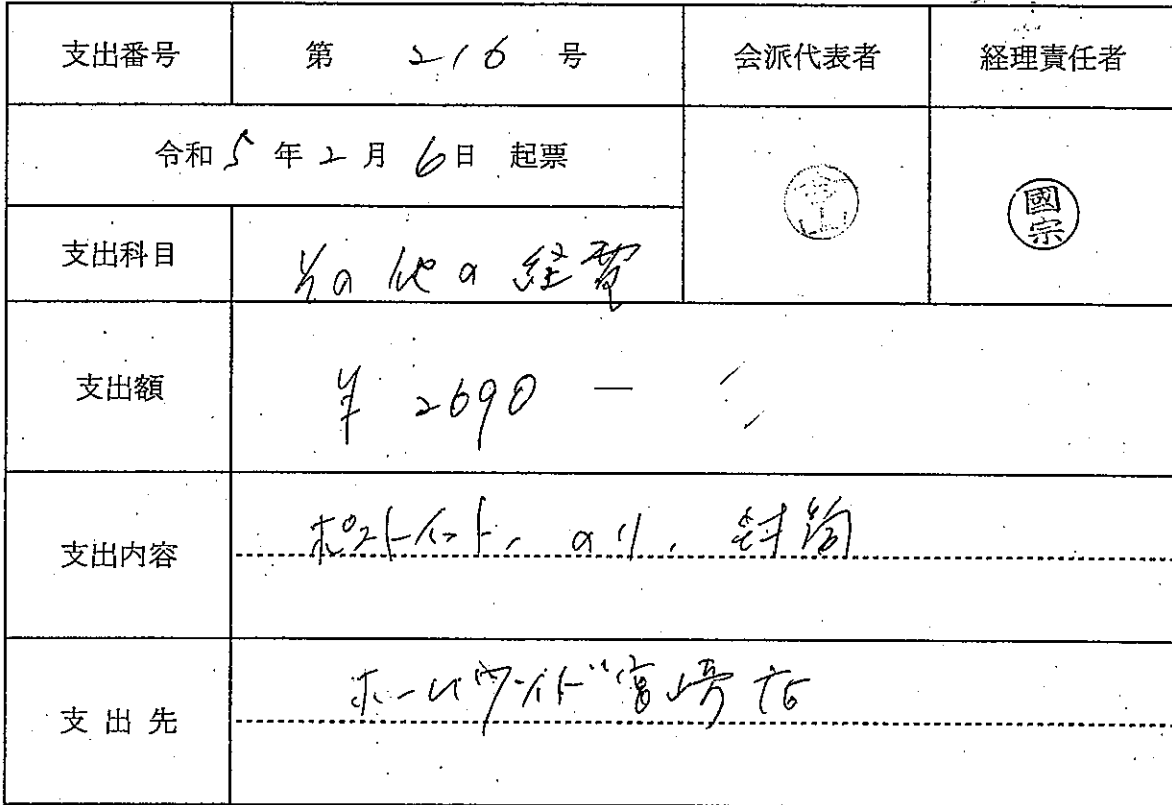 支出番号 第 216 号 会派代表者 経理責任者
令和 5 年 2 月 6日 起票
國宗
支出科目 その他の経費
支出額 ¥ 2690 ―
支出内容 ポストイット、のり、封筒
支出先 ホームワイド宮崎店